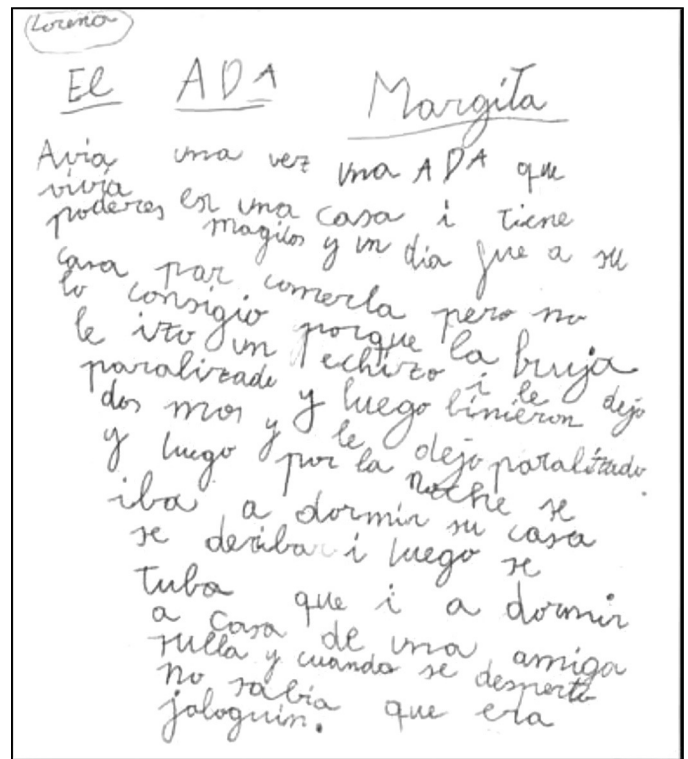 Lorena
El ADA Margita
Avia una vez una ADA que
vivia
poderes en una casa i tiene
magilos y un dia fue a su
casa par comerla pero no
lo consigio porque la bruja
le izo un echizo i le dejo
paralizado y luego binieron
dos mas y le dejo paralizado.
y luego por la noche se
iba a dormir su casa
se deriba i luego se
tuba que i a dormir
a casa de una amiga
sulla y cuando se desperto
no sabia que era
jaloguin.